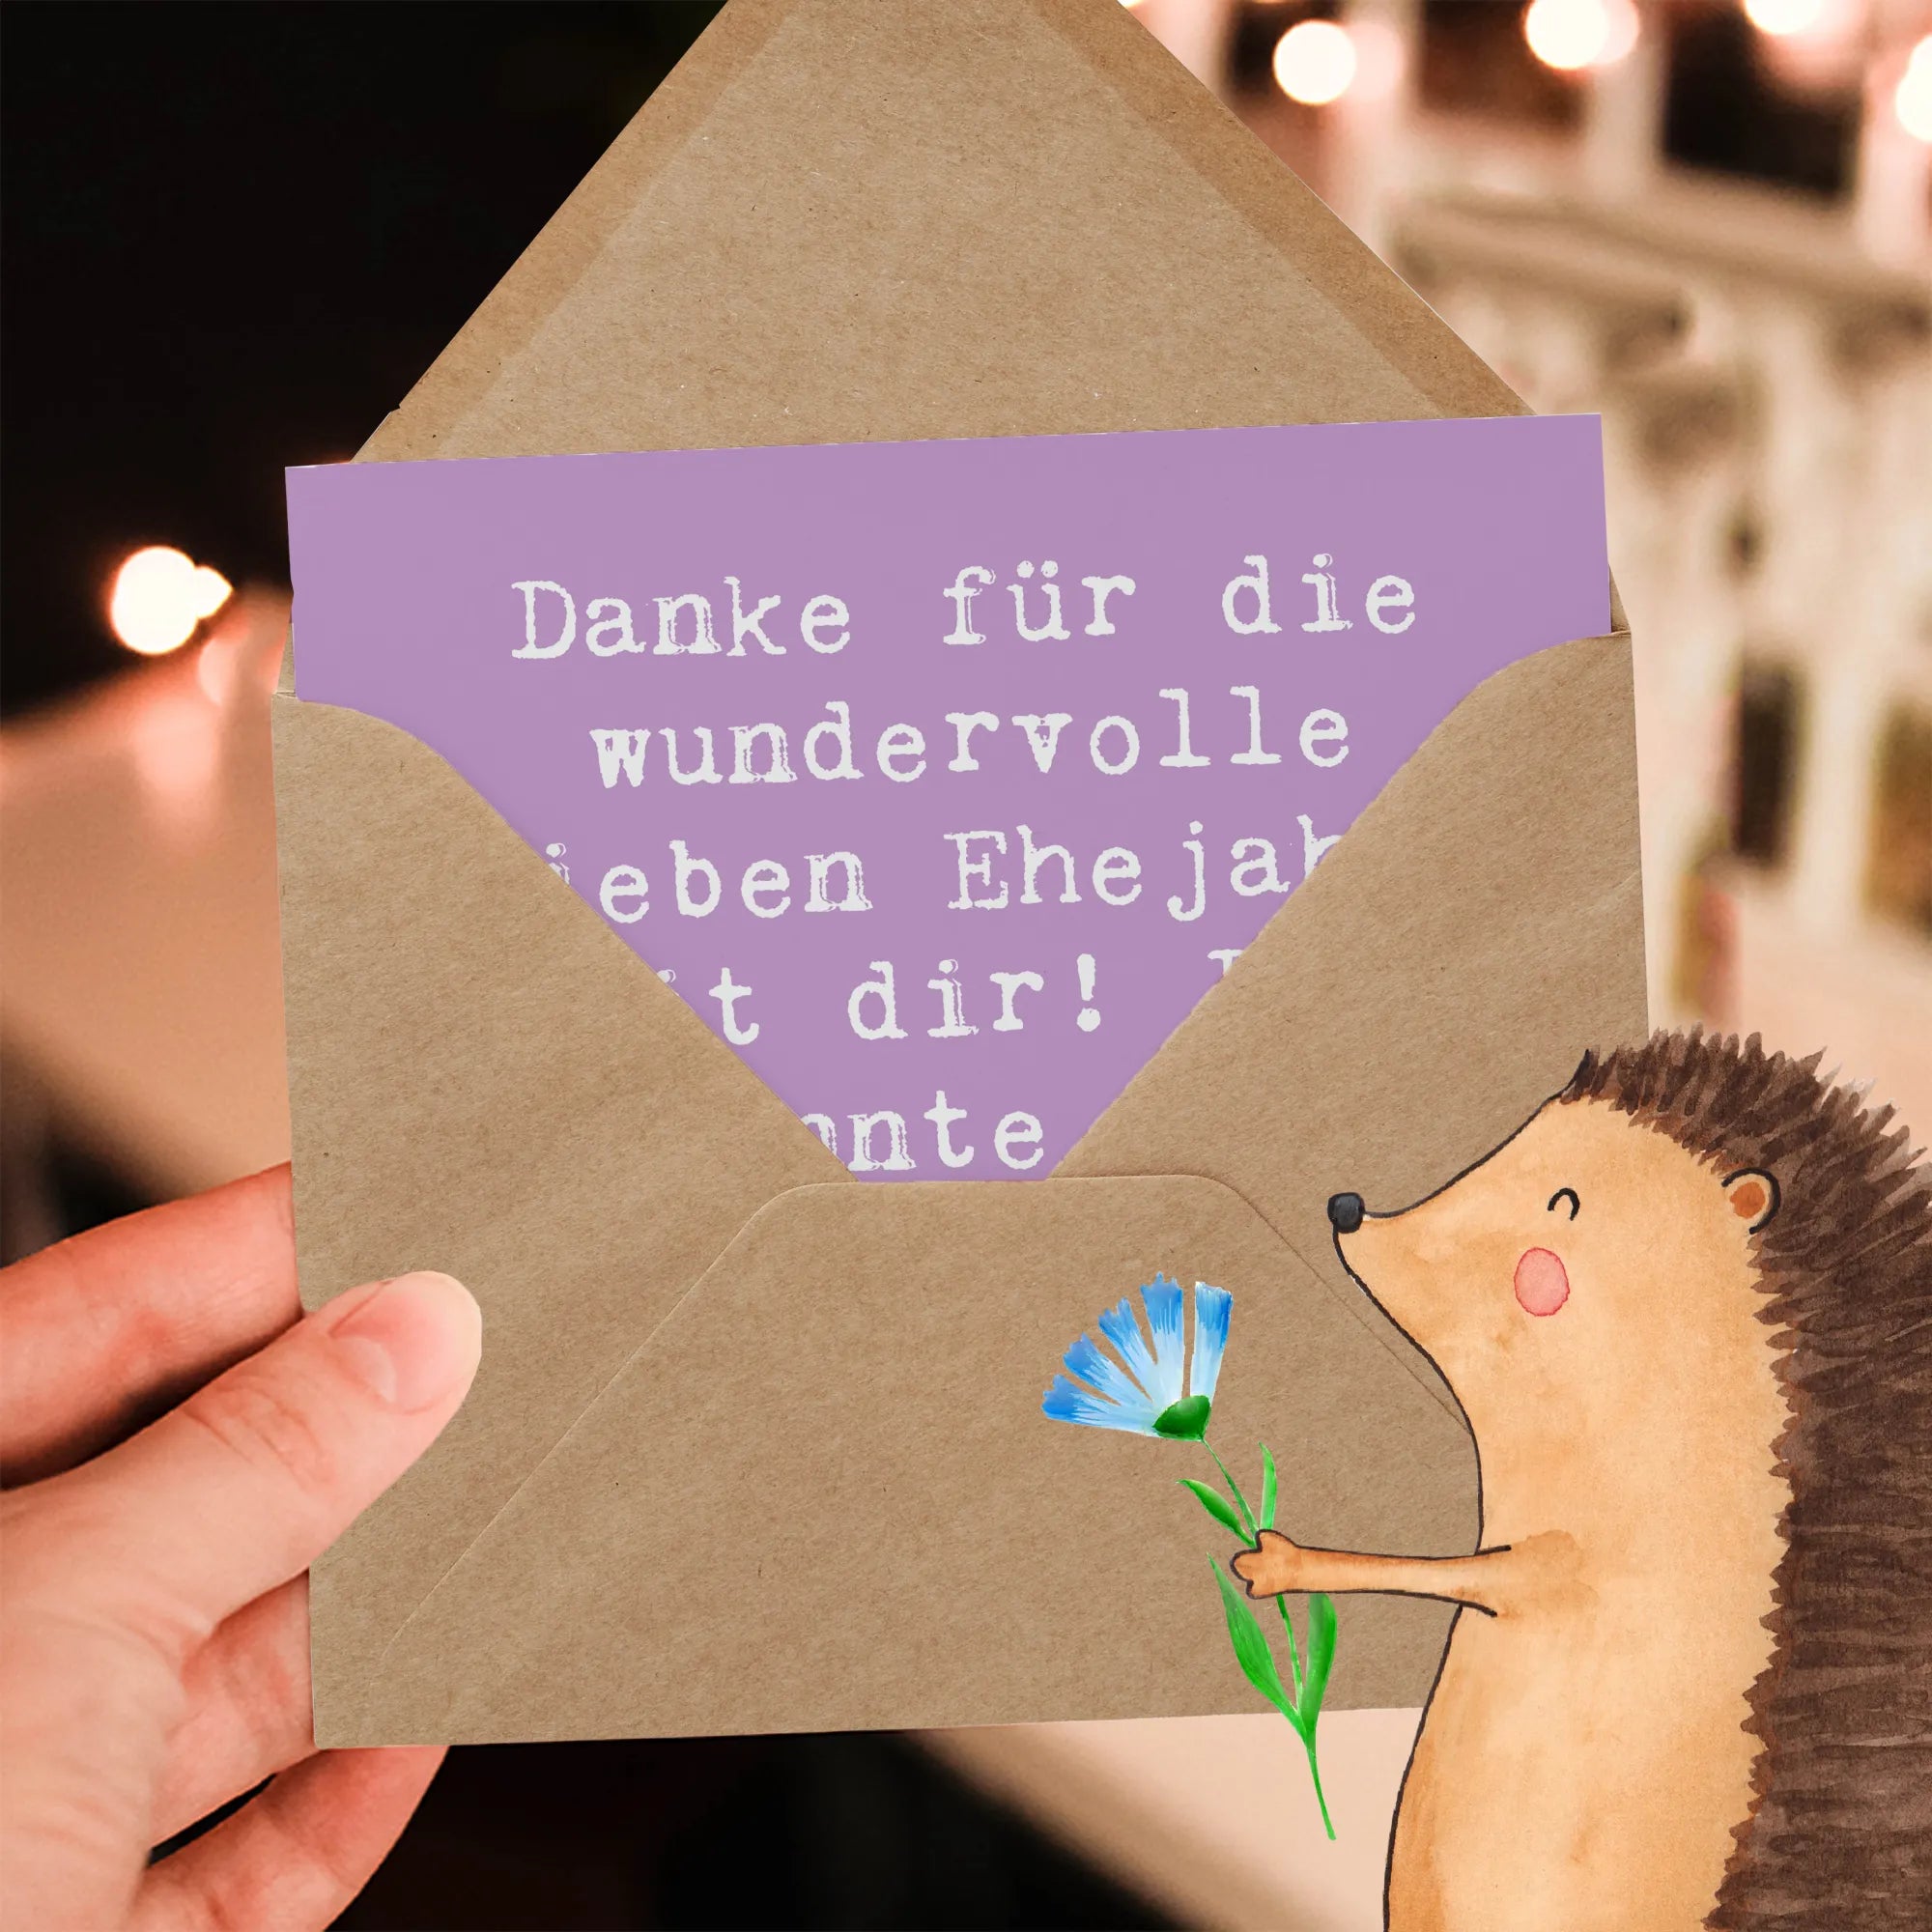 Danke für die
wundervolle
ieben Ehejah
t dir!
nte